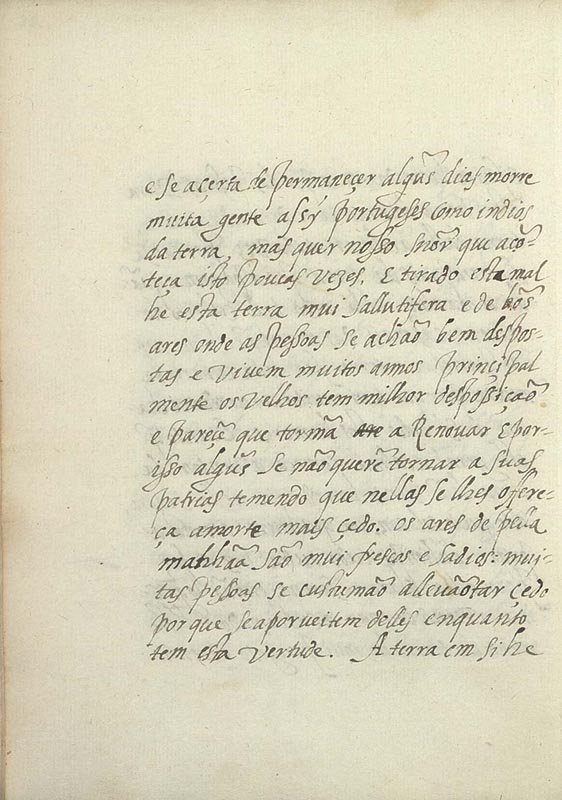 e se açerta de permaneçer algũs dias morre
muita gente assy portugeses como indios
da terra, mas quer nosso Snõr que acõ-
teça isto poucas vezes. E tirado este mal
he esta terra mui sallutifera e de bõs
ares onde as pessoas se achão bem despos-
tas e vivem muitos annos principal
mente os velhos tem milhor desposiçaõ
e pareçẽ que tornã a Renovar E por-
isso algũs se não querẽ tornar a suas
patrias temendo que nellas se lhes offere-
ça amorte mais çedo. os ares de pella
manhãa são mui frescos e sadios: mui-
tas pessoas se custumão allevãotar çedo
por que se aporveitem delles enquanto
tem esta vertude. A terra em si he